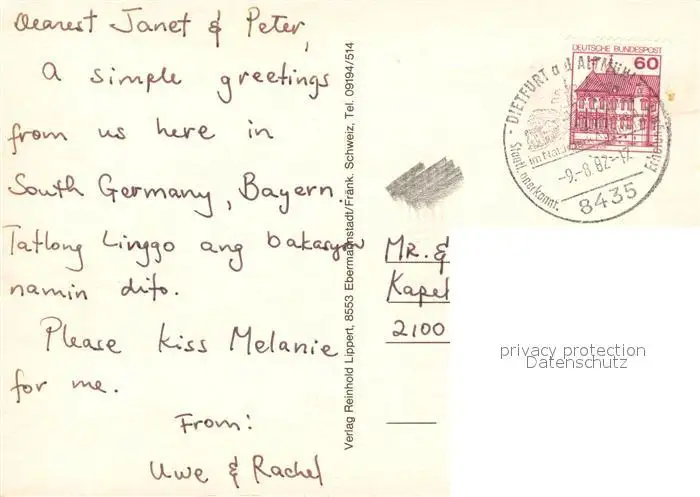 Dearest Janet & Peter,
A simple greetings
from us here in
South Germany, Bayern.
Tatlong Linggo ang bakasyon
namin dito.
Please kiss Melanie
for me.
From:
Uwe & Rachel
Verlag Reinhold Lippert, 8553 Ebermannstadt/Fränk. Schweiz, Tel. 09194/514
DEUTSCHE BUNDESPOST
60
DIETFURT a.d. ALTMÜHL
im Nat
Staatl. anerkannt.
-9.-8.82-17
8435
Mr. &
Kapel
2100
privacy protection
Datenschutz